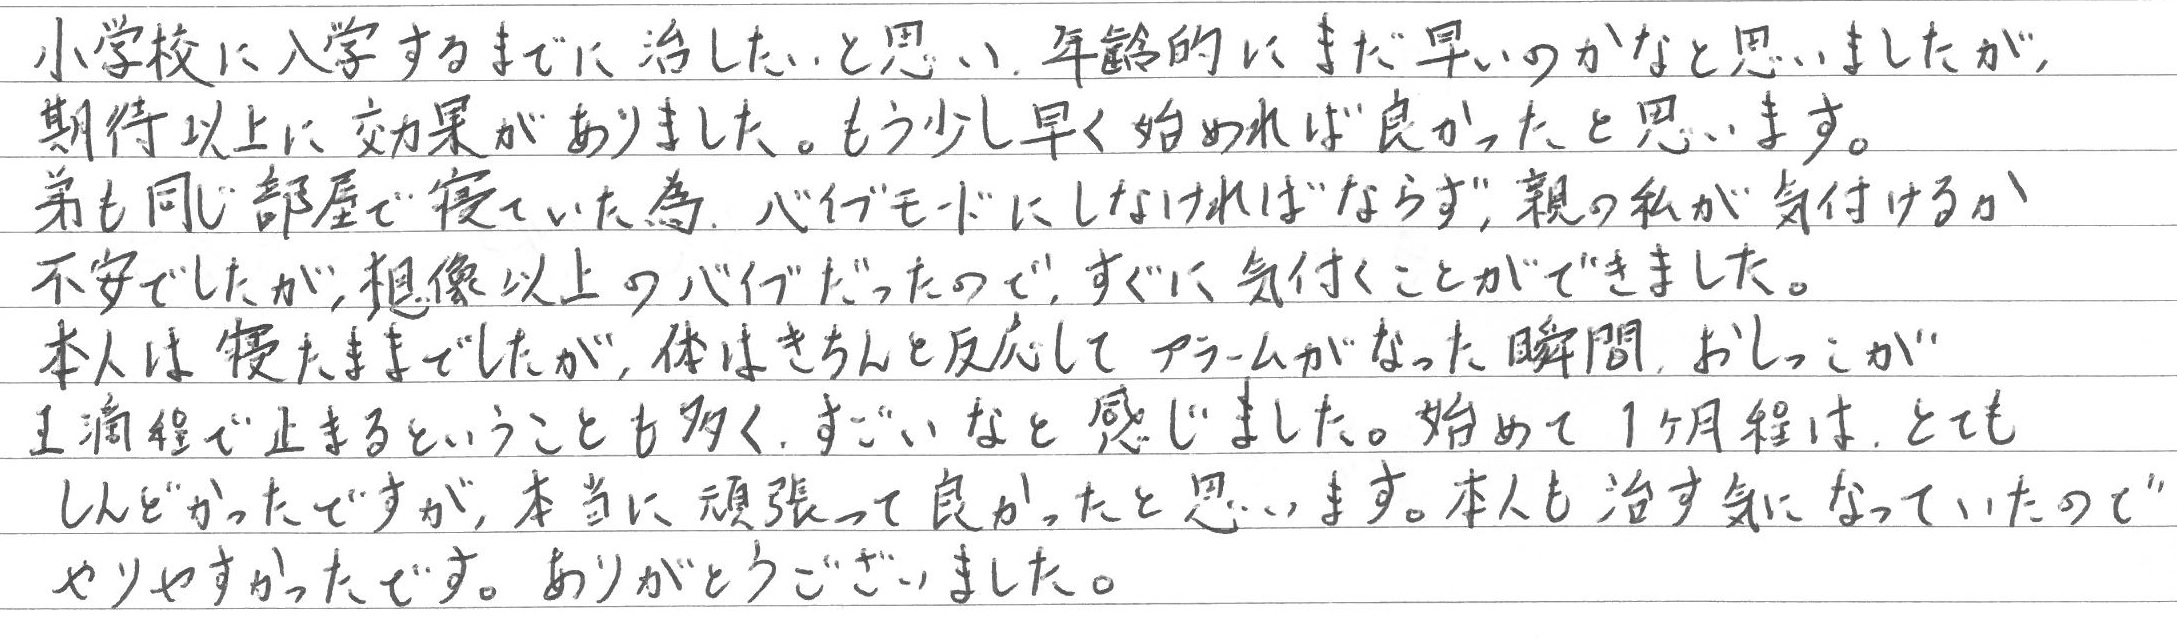 小学校に入学するまでに治したいと思い、年齢的にまだ早いのかなと思いましたが、
期待以上に効果がありました。もう少し早く始めれば良かったと思います。
弟も同じ部屋で寝ていた為、バイブモードにしなければならず、親の私が気付けるか
不安でしたが、想像以上のバイブだったので、すぐに気付くことができました。
本人は寝たままでしたが、体はきちんと反応してアラームがなった瞬間、おしっこが
1滴程で止まるということも多く、すごいなと感じました。始めて1ヶ月程は、とても
しんどかったですが、本当に頑張って良かったと思います。本人も治す気になっていたので
やりやすかったです。ありがとうございました。